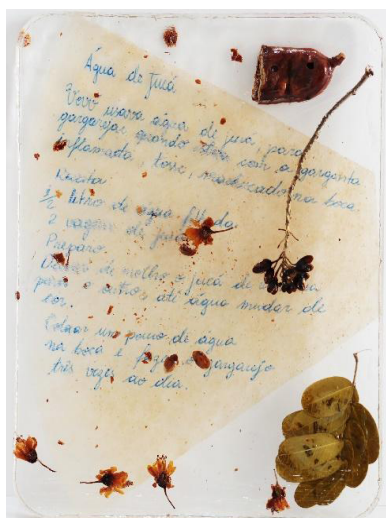 Água de Jucá
Vovó usava água de jucá, para
gargarejar quando estava com a garganta
inflamada, tosse, machucado na boca.
Receita:
1/2 litro de água filtrada
2 vagens de jucá
Preparo:
Deixar de molho o jucá de um dia
para o outro, até água mudar de
cor.
Colocar um pouco de água
na boca e fazer o gargarejo
três vezes ao dia.